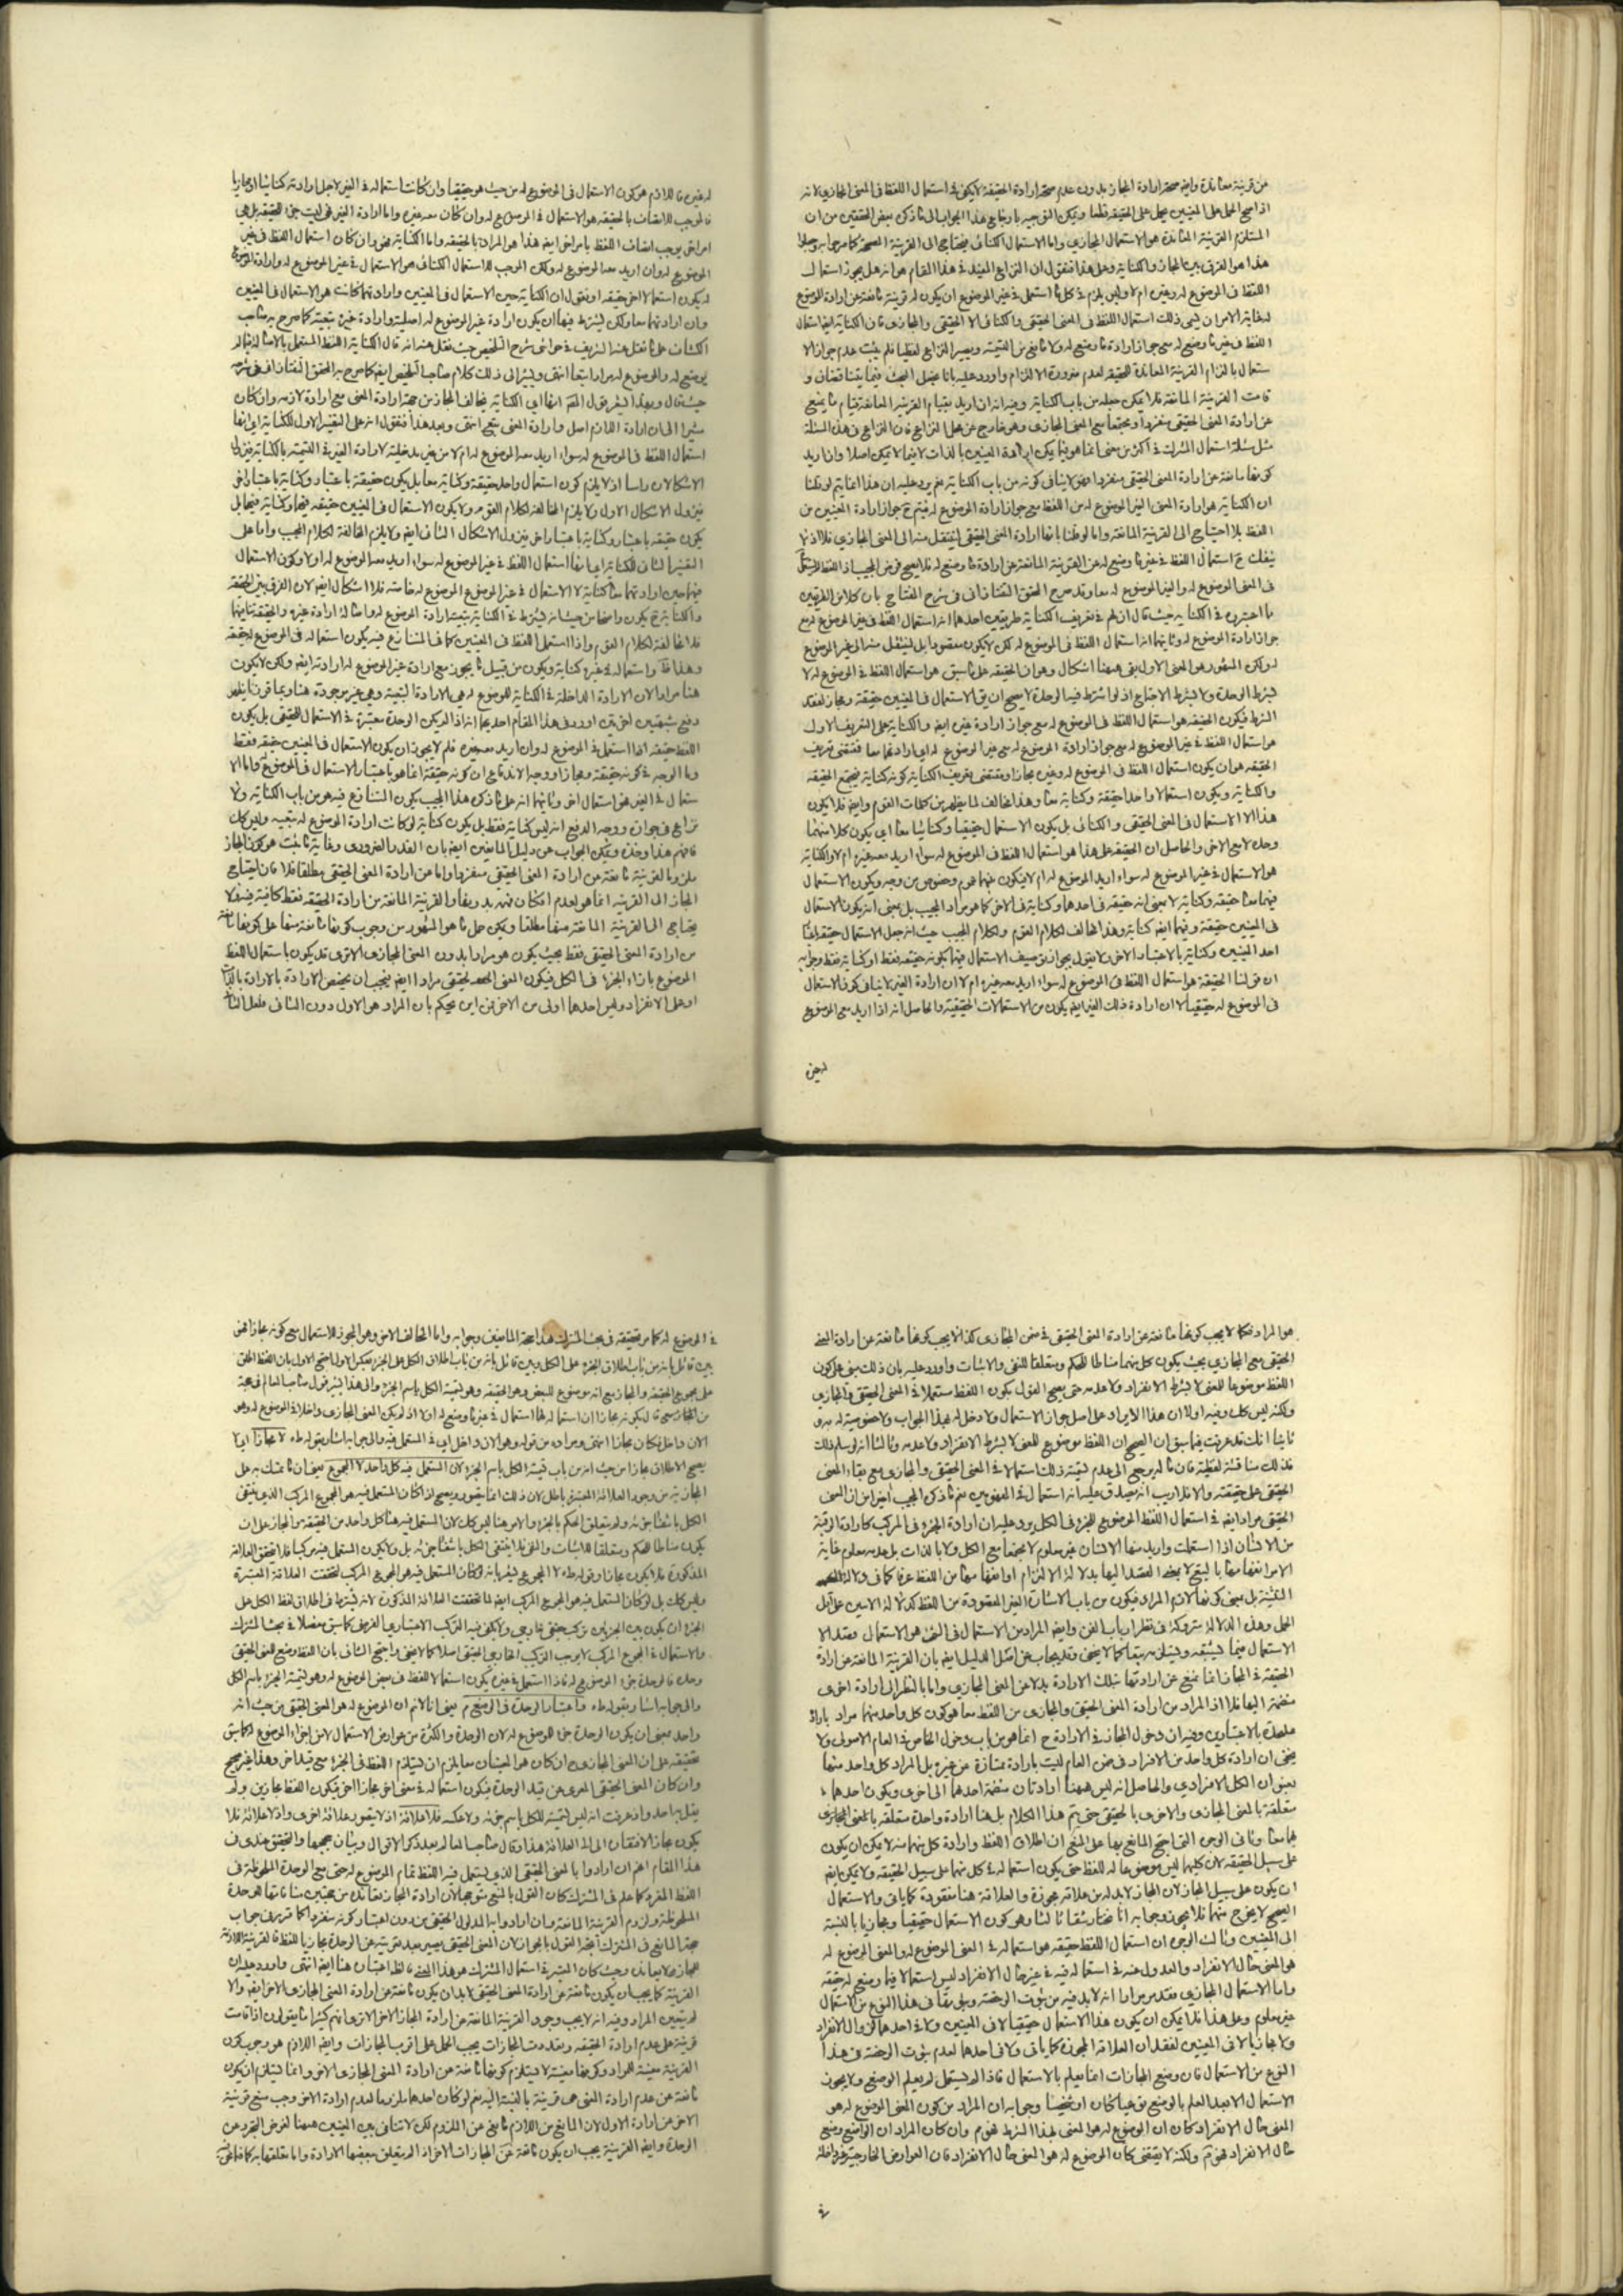 من قرينة معاندة وايض صحة ارادة المجاز بدون عدم صحة ارادة الحقيقة لا يكفى فى استعمال اللفظ فى المعنى المجازى لانه
اذا صح الحمل على المعنيين يحمل على الحقيقة قطعا ويمكن التوجيه بارجاع هذا الجواب الى ما ذكره بعض المحققين من ان
المستلزم القرينة المعاندة هو الاستعمال المجازى واما الاستعمال الكنائى فيحتاج الى القرينة المصححة كما صرحوا به وجعلوا
هذا هو الفرق بين المجاز والكناية وعلى هذا فنقول ان النزاع المفيد فى هذا المقام هو انه هل يجوز استعمال
اللفظ فى الموضوع له وغيره ام لا وليس يلزم فى كل ما استعمل فى غير الموضوع له ان يكون له قرينة مانعة عن ارادة الموضوع
له غاية الامر ان يسمى ذلك استعمال اللفظ فى المعنى الحقيقى والكنائى لا الحقيقى والمجازى فان الكناية ايض استعمال
اللفظ فى غير ما وضع له مع جواز ارادة ما وضع له ولا مانع من التسمية ويصير النزاع لفظيا فلم يثبت عدم جواز الا
ستعمال بالتزام القرينة المعاندة للحقيقة لعدم ضرورة الالتزام واورد عليه بانا نجعل البحث فيما يتناقضان و
قامت القرينة المانعة فلا يمكن جعله من باب الكناية وفيه انه ان اريد بقيام القرينة المانعة قيام ما يمنع
عن ارادة المعنى الحقيقى منفردا ومجتمعا مع المعنى المجازى وهو خارج عن محل النزاع فان النزاع فى هذه المسئلة
مثل مسئلة استعمال المشترك فى اكثر من معنى انما هو فيما يمكن ارادة المعنيين بالذات لا فيما لا يمكن اصلا وان اريد
كونها مانعة عن ارادة المعنى الحقيقى منفردا فهو لا ينافى كونه من باب الكناية نعم يرد عليه ان هذا انما يتم لو قلنا
ان الكناية هو ارادة المعنى الغير الموضوع له من اللفظ مع جواز ارادة الموضوع له فيتم ح جواز ارادة المعنيين من
اللفظ بلا احتياج الى القرينة المانعة واما لو قلنا بانها ارادة المعنى الحقيقى لينتقل منه الى المعنى المجازى فلا اذ لا
ينفك ح استعمال اللفظ فى غير ما وضع له عن القرينة المانعة عن ارادة ما وضع له فلا يصح فرض المجيب اذ اللفظ المستعمل
فى المعنى الموضوع له والغير الموضوع له معا وقد صرح المحقق التفتازانى فى شرح المفتاح بان كلا من الطريقين
مما اعتبره فى الكناية حيث قال ان لهم فى تعريف الكناية طريقين احدهما انه استعمال اللفظ فى غير الموضوع له مع
جواز ارادة الموضوع له وثانيهما انه استعمال اللفظ فى الموضوع له لكن لا يكون مقصودا بل لينتقل منه الى غير الموضوع
له ولكن المشهور هو المعنى الاول بقى ههنا اشكال وهو ان الحقيقة على ما سبق هو استعمال اللفظ فى الموضوع له لا
بشرط الوحدة ولا بشرط الاجتماع اذ لو اشترط فيها الوحدة لا يصح ان يق الاستعمال فى المعنيين حقيقة ومجاز لفقد
الشرط فيكون الحقيقة هو استعمال اللفظ فى الموضوع له مع جواز ارادة غيره ايض والكناية على التعريف الاول
هو استعمال اللفظ فى غير الموضوع له مع جواز ارادة الموضوع له مع غير الموضوع له اى ارادتهما معا فمقتضى تعريف
الحقيقة هو ان يكون استعمال اللفظ فى الموضوع له وغيره مجازا ومقتضى تعريف الكناية كونه كناية فيجتمع الحقيقة
والكناية ويكون استعمالا واحدا حقيقة وكناية معا وهذا مخالف لما يظهر من كلمات القوم وايض فلا يكون
هذا الا الاستعمال فى المعنى الحقيقى والكنائى بل يكون الاستعمال حقيقيا وكنائيا معا اى يكون كلا منهما
وحده لا مع الاخر والحاصل ان الحقيقة على هذا هو استعمال اللفظ فى الموضوع له سواء اريد معه غيره ام لا والكناية
هو الاستعمال فى غير الموضوع له سواء اريد الموضوع له ام لا فيكون بينهما عموم وخصوص من وجه ويكون الاستعمال
فيهما معا حقيقة وكناية لا بمعنى انه حقيقة فى احدهما وكناية فى الاخر كما هو مراد المجيب بل بمعنى انه يكون الاستعمال
فى المعنيين حقيقة وفيهما ايض كناية وهذا مخالف لكلام القوم ولكلام المجيب حيث انه جعل الاستعمال حقيقة باعتبار
احد المعنيين وكناية بالاعتبار الاخر ولا يقول بجواز توصيف الاستعمال فيهما بكونه حقيقة فقط او كناية فقط وجوابه
ان قولنا الحقيقة هو استعمال اللفظ فى الموضوع له سواء اريد معه غيره ام لا ان ارادة الغير لا ينافى كون الاستعمال
فى الموضوع له حقيقيا لا ان ارادة ذلك الغير ايض يكون من الاستعمالات الحقيقية والحاصل انه اذا اريد مع الموضوع
له غيره
له غيره فاللازم هو كون الاستعمال فى الموضوع له من حيث هو حقيقيا وان كانت استعماله فى الغير لاجل ارادته كنائيا او مجازيا
فالموجب للاتصاف بالحقيقة هو الاستعمال فى الموضوع له وان كان معه غيره واما ارادة الغير فهى ليست جزء للحقيقة بل هى
امر اخر يوجب اتصاف اللفظ بامر اخر ايض هذا هو المراد بالحقيقة واما الكناية فهو وان كان استعمال اللفظ فى غير
الموضوع له وان اريد معه الموضوع له ولكن الموجب للاستعمال الكنائى هو الاستعمال فى غير الموضوع له وارادة الموضوع
له يكون استعمالا اخر حقيقة او نقول ان الكناية حين الاستعمال فى المعنيين وارادتهما كانت هو الاستعمال فى المعنيين
وان ارادتهما معا ولكن يشترط فيها ان يكون ارادة غير الموضوع له اصلية وارادة غيره تبعية كما صرح به صاحب
الكشاف على ما نقل عنه الشريف فى حواشى شرح التلخيص حيث نقل عنه انه قال الكناية اللفظ المستعمل بالاصالة فيما لم
يوضع له والموضوع له مراد تبعا انتهى ويشير الى ذلك كلام صاحب التلخيص ايض كما صرح به المحقق التفتازانى فى شرحه
حيث قال وبهذا يشعر قول المصنف انها اى الكناية يخالف المجاز من جهة ارادة المعنى مع ارادة لازمه وان كان
مشيرا الى ان ارادة اللازم اصل وارادة المعنى بتبع انتهى وبعد هذا فنقول انه على التفسير الاول للكناية اى انها
استعمال اللفظ فى الموضوع له سواء اريد معه الموضوع له ام لا من غير مدخلية لارادة الغير فى التسمية بالكناية فيزول
الاشكالان راسا اذ لا يلزم كون استعمال واحد حقيقة وكناية معا بل يكون حقيقة باعتبار وكناية باعتبار اخر
فيزول الاشكال الاول ولا يلزم المخالفة لكلام القوم ولا يكون الاستعمال فى المعنيين حقيقة فيهما وكناية فيهما بل
يكون حقيقة باعتبار وكناية باعتبار اخر فيزول الاشكال الثانى ايض ولا يلزم المخالفة لكلام المجيب واما على
التفسير الثانى للكناية اى انها استعمال اللفظ فى غير الموضوع له سواء اريد معه الموضوع له او لا وكون الاستعمال
فيهما حين ارادتهما معا كناية لا الاستعمال فى غير الموضوع الموضوع له خاصة فلا اشكال ايض لان الفرق بين الحقيقة
والكناية ح يكون واضحا من حيث انه يشترط فى الكناية تبعية ارادة الموضوع له واصالة ارادة غيره والحقيقة يباينهما
فلا مخالفة لكلام القوم واذا استعمل اللفظ فى المعنيين كما فى المتنازع فيه يكون استعماله فى الموضوع له حقيقة
وهذا واستعماله فى غيره كناية ويكون من قبيل ما يجوز مع ارادة غير الموضوع له ارادته ايض ولكن لا يكون
هنا مرادا لان الارادة الداخلة فى الكناية للموضوع له هى الارادة التبعية وهى غير موجودة هنا وبما قررنا يظهر
دفع شبهتين اخريين اورد فى هذا المقام احدهما انه اذا لم يكن الوحدة معتبرة فى الاستعمال الحقيقى بل يكون
اللفظ حقيقة اذا استعمل فى الموضوع له وان اريد معه غيره فلم لا يجوز ان يكون الاستعمال فى المعنيين حقيقة فقط
وما الوجه فى كونه حقيقة ومجازا ووجه الاندفاع ان كونه حقيقة انما هو باعتبار الاستعمال فى الموضوع واما الا
ستعمال فى الغير فهو استعمال اخر وثانيهما انه على ما ذكره هذا المجيب يكون المتنازع فيه هو من باب الكناية ولا
نزاع فى جوازه ووجه الدفع انه ليس كناية فقط بل يكون كناية لو كانت ارادة الموضوع له بتبعية وليس كل
فافهم هذا وخذه ويمكن الجواب عن دليل المانعين ايض بان القدر الضرورى وغاية ما ثبت هو كون المجاز
ملزوما لقرينة مانعة عن ارادة المعنى الحقيقى منفردا واما عن ارادة المعنى الحقيقى مطلقا فلا فان احتياج
المجاز الى القرينة انما هو لعدم امكان فهمه بدونها والقرينة المانعة من ارادة الحقيقة فقط كافية فيه ولا
يحتاج الى القرينة المانعة منها مطلقا ويمكن حمل ما هو المشهور من وجوب كونها مانعة منها على كونها مانعة
من ارادة المعنى الحقيقى فقط بحيث يكون هو مرادا بدون المعنى المجازى الا ترى قد يكون باستعمال اللفظ
الموضوع بازاء الجزء فى الكل فيكون المعنى الحقيقى مرادا ايض فيجب ان يخصص الارادة بالارادة بالذات
او على الانفراد وليس احدهما اولى من الاخر فمن اين يحكم بان المراد هو الاول دون الثانى فلعل الثانى
هو المراد فكما لا يجب كونها مانعة عن ارادة المعنى الحقيقى فى ضمن المجازى كذا لا يجب كونها مانعة عن ارادة المعنى
الحقيقى مع المجازى بحيث يكون كل منهما مناطا للحكم ومتعلقا للنفى والاثبات واورد عليه بان ذلك مبنى على كون
اللفظ موضوعا للمعنى لا بشرط الانفراد ولا عدمه حتى يصح القول بكون اللفظ مستعملا فى المعنى الحقيقى والمجازى
ولكنه ليس كل وفيه اولا ان هذا الايراد على اصل جواز الاستعمال ولا دخل له بهذا الجواب ولا خصوصية له به و
ثانيا انك قد عرفت فيما سبق ان الصحيح ان اللفظ موضوع للمعنى لا بشرط الانفراد ولا عدمه وثالثا انه لو سلم ذلك
فذلك مناقشة لفظية فان مآله يرجع الى عدم تسمية ذلك استعمالا فى المعنى الحقيقى والمجازى مع بقاء المعنى
الحقيقى على حقيقته والا فلا ريب انه يصدق عليه انه استعمال فى المفهومين نعم ما ذكره المجيب اخيرا من ان المعنى
الحقيقى مراد ايض فى استعمال اللفظ الموضوع للجزء فى الكل يرد عليه ان ارادة الجزء فى المركب كارادة الرقبة
من الانسان اذا استعملت واريد منها الانسان غير معلوم لا مجتمعا مع الكل ولا بالذات بل عدمه معلوم غاية
الامر انها معا بالتبع لا بمعنى القصد اليها بدلالة الالتزام او انها معا من اللفظ عرفا كما فى دلالة
التنبيه بل بمعنى كونها لازم المراد فيكون من باب الاشارة الغير المقصودة من اللفظ كدلالة الايتين على اقل
الحمل وهذه الدلالة متروكة فى نظر ارباب الفن وايض المراد من الاستعمال فى الشئ هو الاستعمال وقصد الا
الاستعمال فيما يستتبعه ويستلزمه تبعا كما لا يخفى وقد يجاب عن اصل الدليل ايض بان القرينة المانعة عن ارادة
الحقيقة فى المجاز انما يمنع عن ارادتها بتلك الارادة بدلا عن المعنى المجازى واما بالنظر الى ارادة اخرى
منضمة اليها فلا اذ المراد من ارادة المعنى الحقيقى والمجازى من اللفظ معا هو كون كل واحد منهما مراد بارادة
ملحدة بالاعتبارين وفيه ان دخول المجاز فى الارادة ح انما هو من باب دخول الخاص فى العام الاصولى ولا
يخفى ان ارادة كل واحد من الافراد فى ضمن العام ليست بارادة ممتازة عن غيره بل المراد كل واحد منها
بعنوان الكل الافرادى والحاصل انه ليس ههنا ارادتان منضمة احدهما الى اخرى ويكون احدهما
متعلقة بالمعنى المجازى والاخرى بالحقيقى حتى يتم هذا الكلام بل هنا ارادة واحدة متعلقة بالمعنى المجازى
هما معا وثانى الوجوه التى احتج المانع بها على المنع ان اطلاق اللفظ وارادة كل منهما منه لا يمكن ان يكون
على سبيل الحقيقة لان كليهما ليس موضوعا له للفظ حتى يكون استعماله فى كل منهما على سبيل الحقيقة ولا يمكن ايض
ان يكون على سبيل المجاز لان المجاز لا بد له من علاقة مجوزة والعلاقة هنا مفقودة كما ياتى والاستعمال
الصحيح لا يخرج عنهما فلا يجوز وجوابه انا نختار شقا ثالثا وهو كون الاستعمال حقيقيا ومجازيا بالنسبة
الى المعنيين وثالث الوجوه ان استعمال اللفظ حقيقة هو استعماله فى المعنى الموضوع له والمعنى الموضوع له
هو المعنى حال الانفراد والعدول عنه فى استعماله فيه فى غير حال الانفراد ليس استعمالا فيما وضع له حقيقة
واما الاستعمال المجازى فقد مر مرارا انه لا بد فيه من ثبوت الرخصة وهى بعد فى هذا النوع من الاستعمال
غير معلوم وعلى هذا فلا يمكن ان يكون هذا الاستعمال حقيقيا لا فى المعنيين ولا فى احدهما لزوال الانفراد
ولا مجازيا لا فى المعنيين لفقدان العلاقة المجوزة كما ياتى ولا فى احدهما لعدم ثبوت الرخصة فى هذا
النوع من الاستعمال فان وضع المجازات انما يعلم بالاستعمال فاذا لم يستعمل لم يعلم الوضع ولا يجوز
الاستعمال الا بعد العلم بالوضع نوعيا كان او شخصيا وجوابه ان المراد من كون المعنى الموضوع له هو
المعنى حال الانفراد كان ان الموضوع له هو المعنى بهذا الشرط فهو م وان كان المراد ان الواضع وضع
حال الانفراد فهو م ولكنه لا يقتضى كان الموضوع له هو المعنى حال الانفراد فان العوارض الخارجية غير داخلة
فى
فى الموضوع له كما مر تحقيقه فى بحث المشترك هذا حجة المانعين وجوابه واما المخالف الاخر وهو المجوز للاستعمال مع كونه مجازا فهو
بين قائل بانه من باب اطلاق الجزء على الكل وبين قائل بانه من باب اطلاق الكل على الجزء بعكس الاول احتج الاول بان اللفظ اطلق
على مجموع الحقيقة والمجاز مع انه موضوع للبعض وهو الحقيقة وهو تسمية الكل باسم الجزء والى هذا يشير قول صاحب المعالم فى حجة
من المجاز حيث قال يكون مجازا ان استعماله لهما استعمال فى غير ما وضع له اولا اذ لم يكن المعنى المجازى داخلا فى الموضوع له وهو
الان داخل فكان مجازا انتهى ومراده من قوله وهو الان داخل اى فى المستعمل فيه والى جوابه اشار بقوله طه لا مجازا اى لا
يصح الاطلاق مجازا من حيث انه من باب تسمية الكل باسم الجزء لان المستعمل فيه كل واحد لا المجموع يعنى ان ما تمسك به على
المجازية من وجود العلاقة المعتبرة باطل لان ذلك انما يتصور ويصح اذا كان المستعمل فيه هو المجموع المركب الذى ينتفى
الكل بانتفاء جزئه ولم يتعلق الحكم بالجزء والامر هنا ليس كل لان المستعمل فيه هنا كل واحد من الحقيقة والمجاز على ان
يكون مناطا للحكم ومتعلقا للاثبات والنفى فلا ينتفى الكل بانتفاء جزئه بل ولا يكون المستعمل فيه مركبا فلا تتحقق العلاقة
المذكورة فلا يكون مجازا وقوله طه لا المجموع يشعر بانه لو كان المستعمل فيه هو المجموع المركب لتحققت العلاقة المعتبرة
وليس كل بل لو كان المستعمل فيه هو المجموع المركب ايض لما تحققت العلاقة المذكورة لانه يشترط فى اطلاق لفظ الكل على
الجزء ان يكون بين الجزئين تركيب حقيقى خارجى ولا يكفى فيه التركيب الاعتبارى العرفى كما سبق مفصلا فى بحث المشترك
والاستعمال فى المجموع المركب لا يوجب التركيب الخارجى الحقيقى اصلا كما لا يخفى واحتج الثانى بان اللفظ وضع للمعنى الحقيقى
وحده فالوحدة جزء الموضوع له فاذا استعمل فى غيره يكون استعمالا للفظ فى بعض الموضوع له وهو تسمية الجزء باسم الكل
والى جوابه اشار بقوله طه واعتبار الوحدة فى الوضع م يعنى انا لا نم ان الموضوع له هو المعنى الحقيقى من حيث انه
واحد بمعنى ان يكون الوحدة جزء الموضوع له لان الوحدة والكثرة من عوارض الاستعمال لا من اجزاء الموضوع له كما سبق
تحقيقه على ان المعنى المجازى ان كان هو المعنيان معا يلزم ان يستلزم اللفظ فى الجزء مع قيد اخر وهذا غير صحيح
وان كان المعنى الحقيقى المعرى عن قيد الوحدة فيكون استعماله فى معنى اخر مجازا اخر فيكون اللفظ مجازين ولم
يقل به احد وقد عرفت انه ليس تسمية للكل باسم جزئه ولا عكسه فلا علاقة اذ لا يتصور علاقة اخرى واذ لا علاقة فلا
يكون مجازا لافتقاره الى العلاقة هذا وقال صاحب المعالم بعد ذكر الاقوال وبيان حججها والتحقيق عندى فى
هذا المقام انهم ان ارادوا بالمعنى الحقيقى الذى يستعمل فيه اللفظ تمام الموضوع له حتى مع الوحدة الملحوظة فى
اللفظ المفرد كما علم فى المشترك كان القول بالمنع متوجها لان ارادة المجاز تعانده من جهتين منافاتها لوحدة
الملحوظة ولزوم القرينة المانعة وان ارادوا به المدلول الحقيقى من دون اعتبار كونه منفردا كما قرر فى جواب
حجة المانع فى المشترك اتجه القول بالجواز لان المعنى الحقيقى يصير بعد تعريته عن الوحدة مجازيا للفظ فالقرينة اللازمة
للمجاز لا يعانده وحيث كان المعتبر فى استعمال المشترك هو هذا المعنى فالظ اعتباره هنا ايض انتهى واورد عليه ان
القرينة كما يجب ان يكون مانعة عن ارادة المعنى الحقيقى لا بد ان يكون مانعة عن ارادة المعنى المجازى الاخر ايض والا
لم يتعين المراد وفيه انه لا يجب وجود القرينة المانعة عن ارادة المجاز الاخر الا ترى انهم كثيرا ما يقولون اذا قامت
قرينة على عدم ارادة الحقيقة وتعددت المجازات يجب الحمل على اقرب المجازات وايض اللازم هو وجوب كون
القرينة معينة للمراد وكونها معينة لا يستلزم كونها مانعة عن ارادة المعنى المجازى الاخر وانما يستلزم ان يكون
مانعة عن عدم ارادة المعنى هى قرينة بالنسبة اليه نعم لو كان احدهما ملزوما لعدم ارادة الاخر وجب منع قرينة
الاخر عن ارادة الاول لان المانع من اللازم مانع عن الملزوم لكن لا تنافى بين المعنيين ههنا لفرض التجرد عن
الوحدة وايض القرينة يجب ان يكون مانعة عن المجازات الاخر اذا لم يتعلق ببعضها الارادة واما مع تعلقها به كما فيما نحن فيه